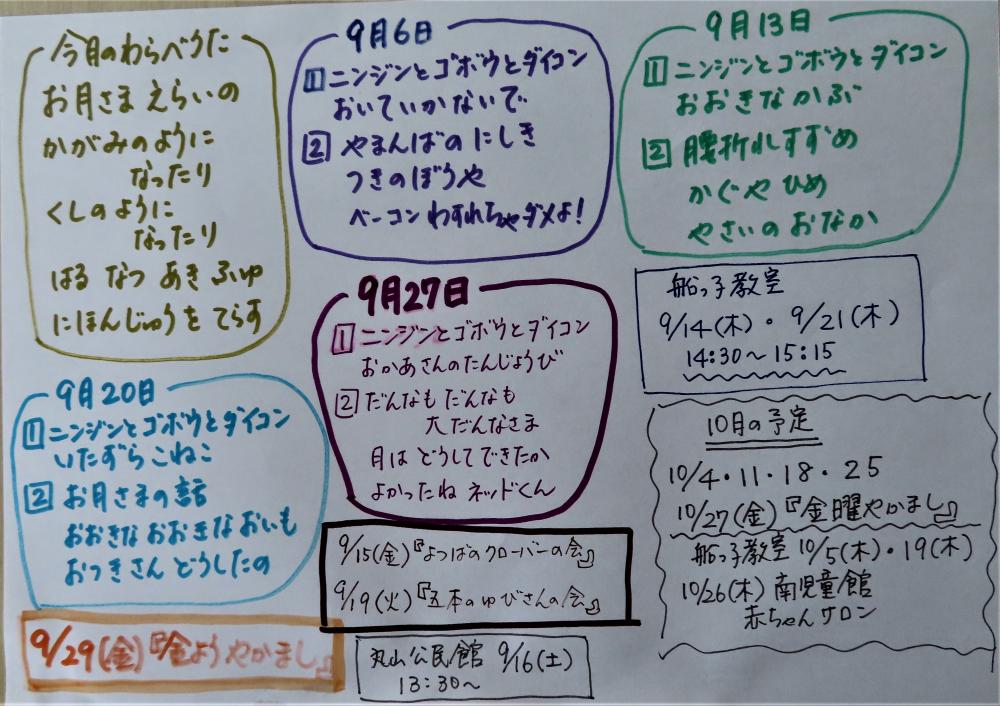 今月のわらべうた
お月さま えらいの
かがみのように
なったり
くしのように
なったり
はる なつ あき ふゆ
にほんじゅうを てらす
9月6日
1 ニンジンとゴボウとダイコン
おいていかないで
2 やまんばの にしき
つきのぼうや
ベーコン わすれちゃダメよ!
9月13日
1 ニンジンとゴボウとダイコン
おおきな かぶ
2 腰折れすずめ
かぐや ひめ
やさいの おなか
9月20日
1 ニンジンとゴボウとダイコン
いたずら こねこ
2 お月さまの話
おおきな おおきな おいも
おつきさん どうしたの
9月27日
1 ニンジンとゴボウとダイコン
おかあさんのたんじょうび
2 だんなも だんなも
大だんなさま
月は どうしてできたか
よかったね ネッドくん
船っ子教室
9/14(木)・9/21(木)
14:30〜15:15
10月の予定
10/4・11・18・25
10/27(金)『金曜やかまし』
船っ子教室 10/5(木)・19(木)
10/26(木) 南児童館
赤ちゃんサロン
9/15(金)『よつばのクローバーの会』
9/19(火)『五本のゆびさんの会』
9/29(金)『金ようやかまし』
丸山公民館 9/16(土)
13:30〜